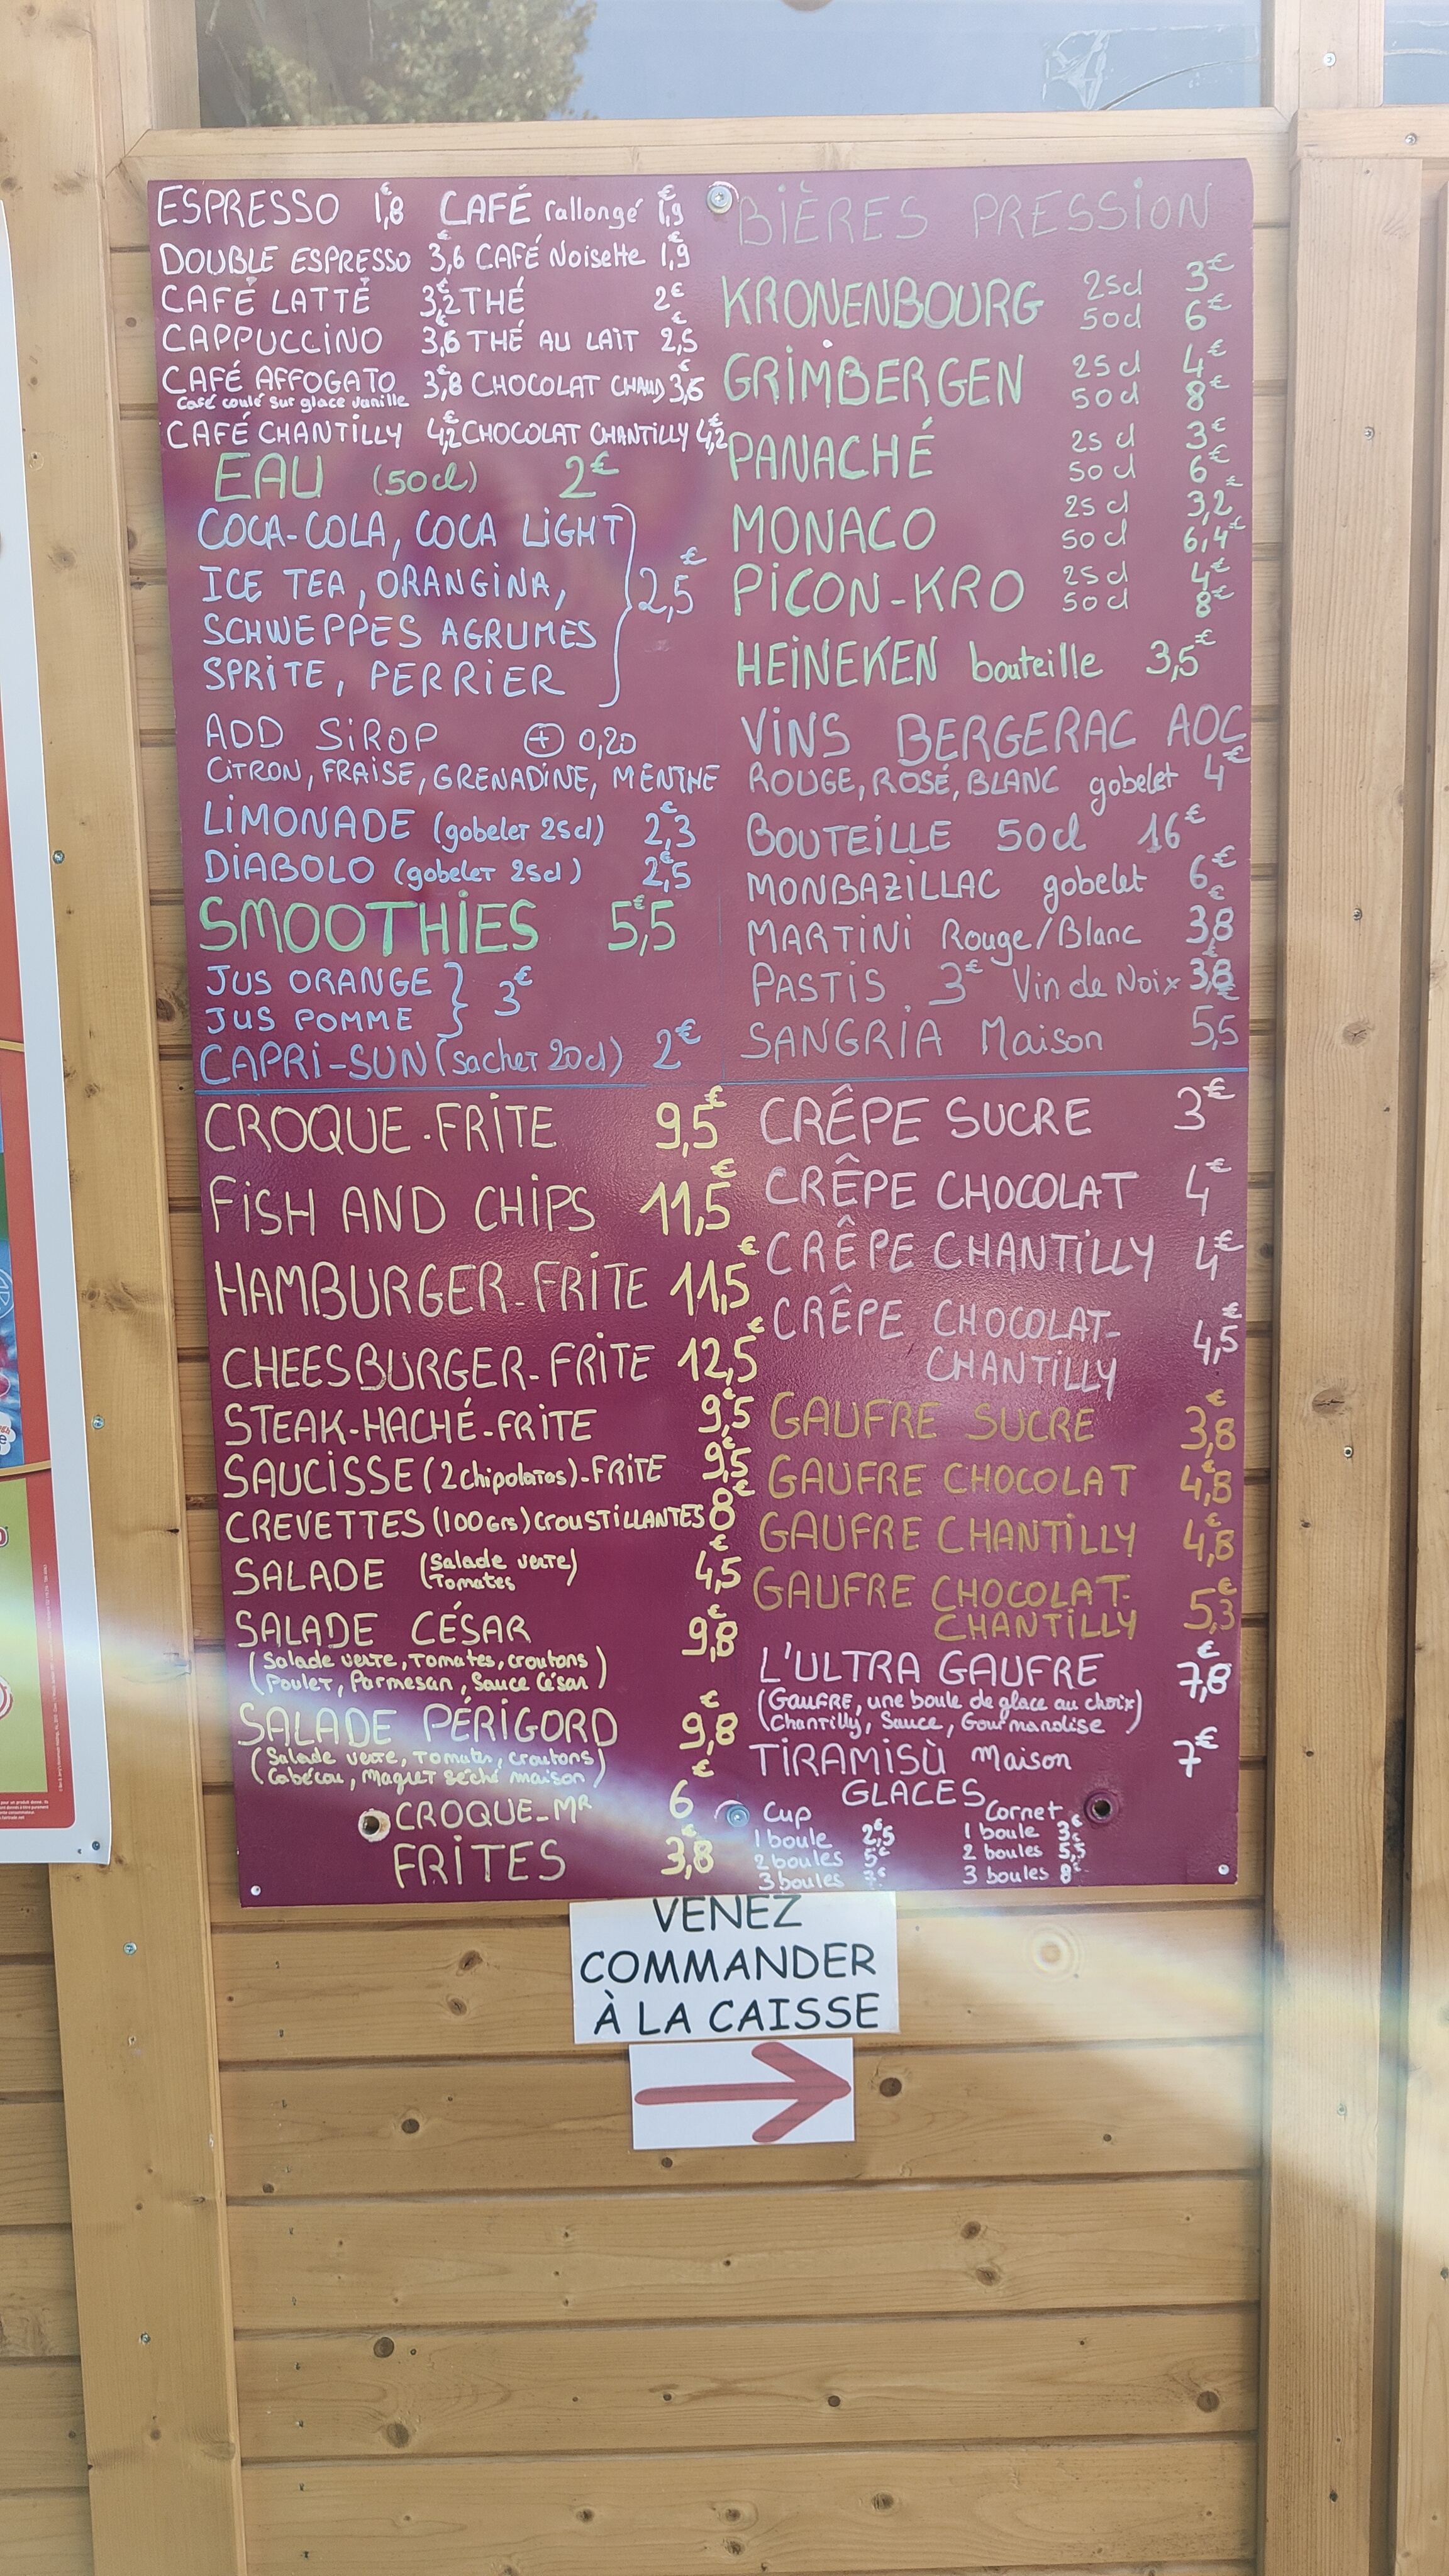 ESPRESSO 1,8€ CAFÉ rallongé 1,9€
DOUBLE ESPRESSO 3,6€ CAFÉ Noisette 1,9€
CAFÉ LATTÉ 3,2€ THÉ 2€
CAPPUCCINO 3,6€ THÉ AU LAIT 2,5€
CAFÉ AFFOGATO 3,8€ CHOCOLAT CHAUD 3,6€
Café coulé sur glace vanille
CAFÉ CHANTILLY 4,2€ CHOCOLAT CHANTILLY 4,2€
EAU (50cl) 2€
COCA-COLA, COCA LIGHT
ICE TEA, ORANGINA,
SCHWEPPES AGRUMES
SPRITE, PERRIER
2,5€
ADD SIROP + 0,20
CITRON, FRAISE, GRENADINE, MENTHE
LIMONADE (gobelet 25cl) 2,3€
DIABOLO (gobelet 25cl) 2,5€
SMOOTHIES 5,5€
JUS ORANGE
JUS POMME
3€
CAPRI-SUN (sachet 20cl) 2€
BIÈRES PRESSION
KRONENBOURG 25cl 3€
50cl 6€
GRIMBERGEN 25cl 4€
50cl 8€
PANACHÉ 25cl 3€
50cl 6€
MONACO 25cl 3,2€
50cl 6,4€
PICON-KRO 25cl 4€
50cl 8€
HEINEKEN bouteille 3,5€
VINS BERGERAC AOC
ROUGE, ROSÉ, BLANC gobelet 4€
BOUTEILLE 50cl 16€
MONBAZILLAC gobelet 6€
MARTINI Rouge/Blanc 3,8€
PASTIS. 3€ Vin de Noix 3,8€
SANGRIA Maison 5,5€
CROQUE-FRITE 9,5€
FISH AND CHIPS 11,5€
HAMBURGER-FRITE 11,5€
CHEESBURGER-FRITE 12,5€
STEAK-HACHÉ-FRITE 9,5€
SAUCISSE (2 chipolatas)-FRITE 9,5€
CREVETTES (100Grs) CROUSTILLANTES 8€
SALADE (Salade verte 4,5€
Tomates)
SALADE CÉSAR 9,8€
(Salade verte, Tomates, croutons
Poulet, Parmesan, Sauce César)
SALADE PÉRIGORD 9,8€
(Salade verte, Tomates, croutons
Cabécou, Magret séché maison)
CROQUE-MR 6€
FRITES 3,8€
CRÊPE SUCRE 3€
CRÊPE CHOCOLAT 4€
CRÊPE CHANTILLY 4€
CRÊPE CHOCOLAT-
CHANTILLY 4,5€
GAUFRE SUCRE 3,8€
GAUFRE CHOCOLAT 4,8€
GAUFRE CHANTILLY 4,8€
GAUFRE CHOCOLAT-
CHANTILLY 5,3€
L'ULTRA GAUFRE 7,8€
(GAUFRE, une boule de glace au choix
Chantilly, Sauce, Gourmandise)
TIRAMISÙ Maison 7€
GLACES
Cup Cornet
1 boule 2,5€ 1 boule 3€
2 boules 5€ 2 boules 5,5€
3 boules 7€ 3 boules 8€
VENEZ
COMMANDER
À LA CAISSE